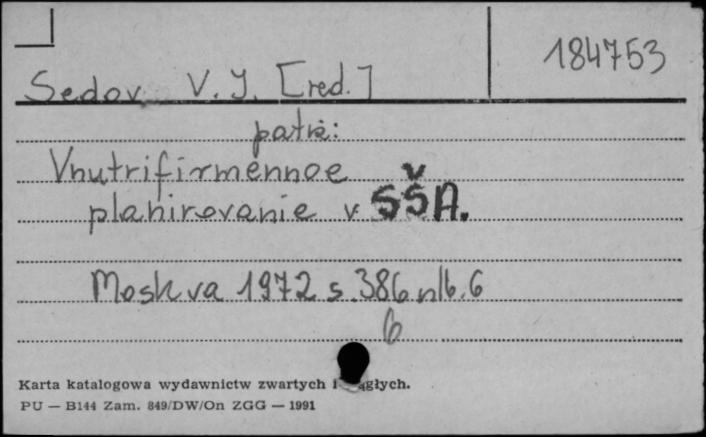 184753
Sedov V. I. [red.]
patrz:
Vnutrifirmennoe
planirovanie v SŠA.
Moskva 1972 s. 386 nlb. 6
6
Karta katalogowa wydawnictw zwartych i
PU — B144 Zam. 849/DW/On ZGG — 1991